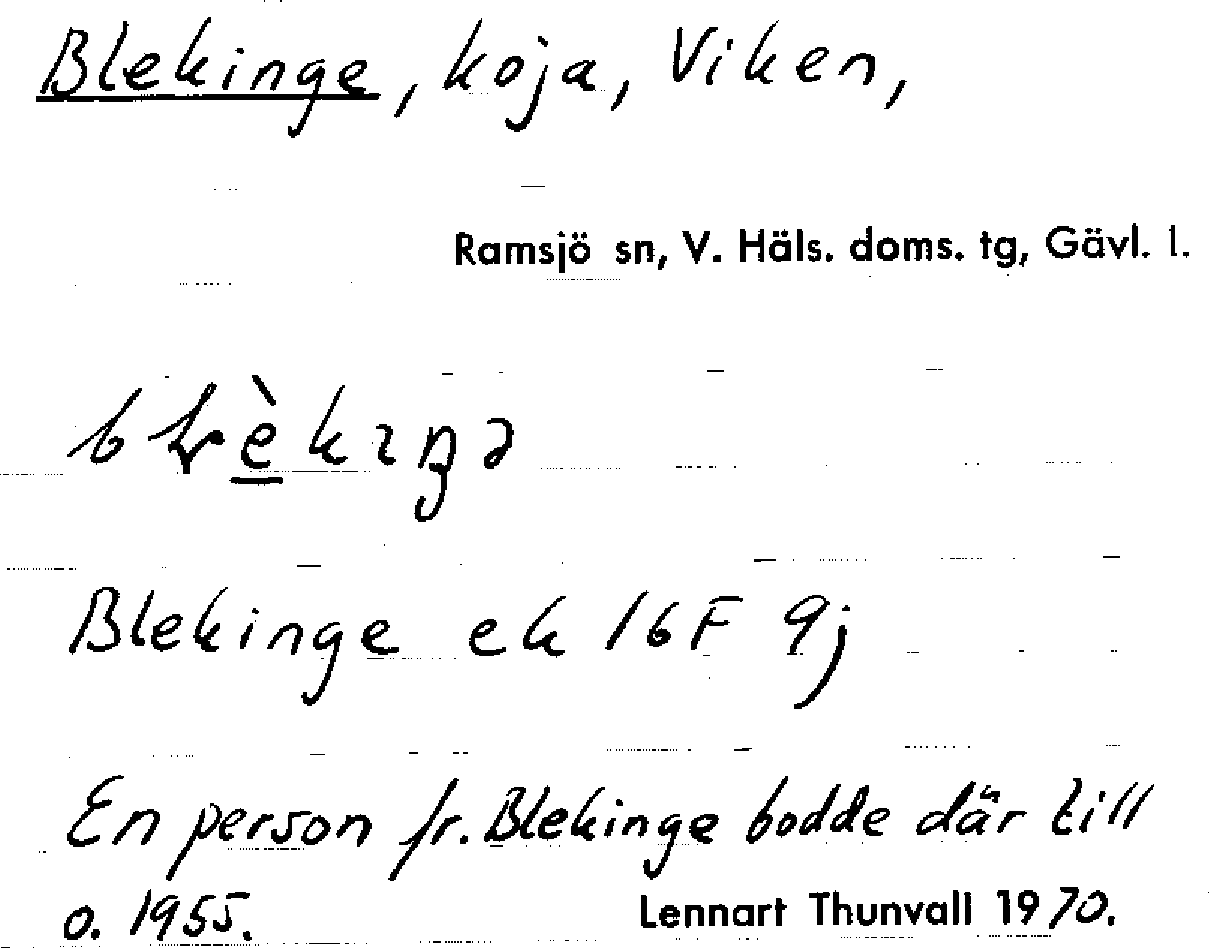 Blekinge, koja, Viken,
Ramsjö sn, V. Häls. doms. tg, Gävl. l.
Blekinge ek 16F 9j
En person fr. Blekinge bodde där till
o. 1955. Lennart Thunvall 1970.